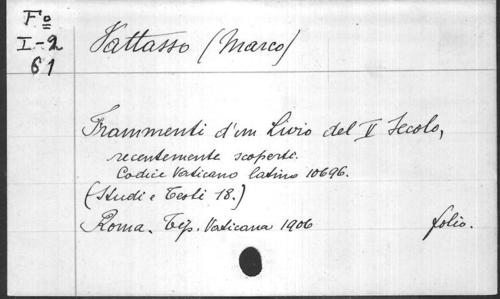 Fº
I-2
61
Vattasso (Marco)
Frammenti d'un Livio del II Secolo,
recentemente scoperti.
Codice Vaticano latino 10696.
(Studi e Testi 18.)
Roma. Tip. Vaticana 1906 folio.